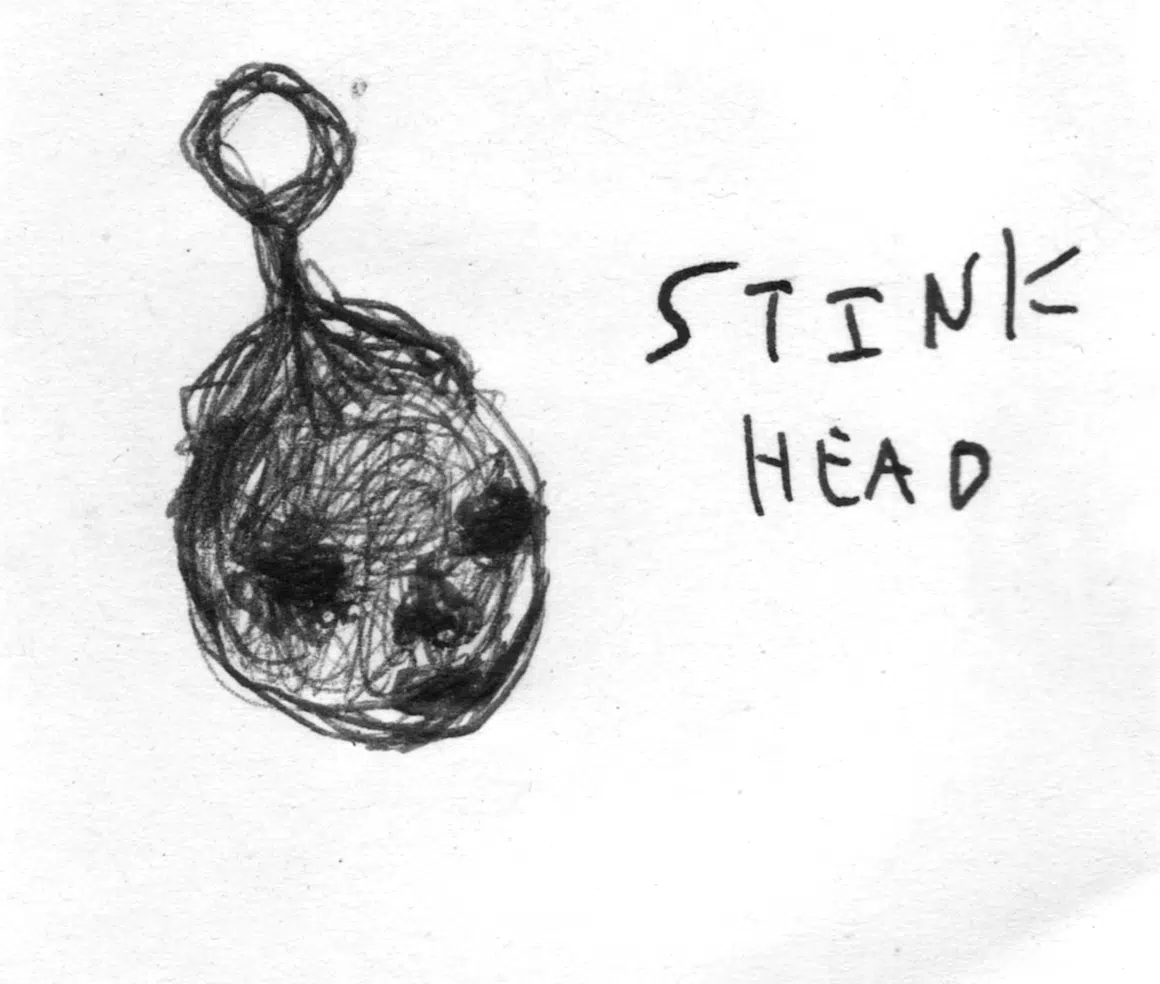 STINK
HEAD